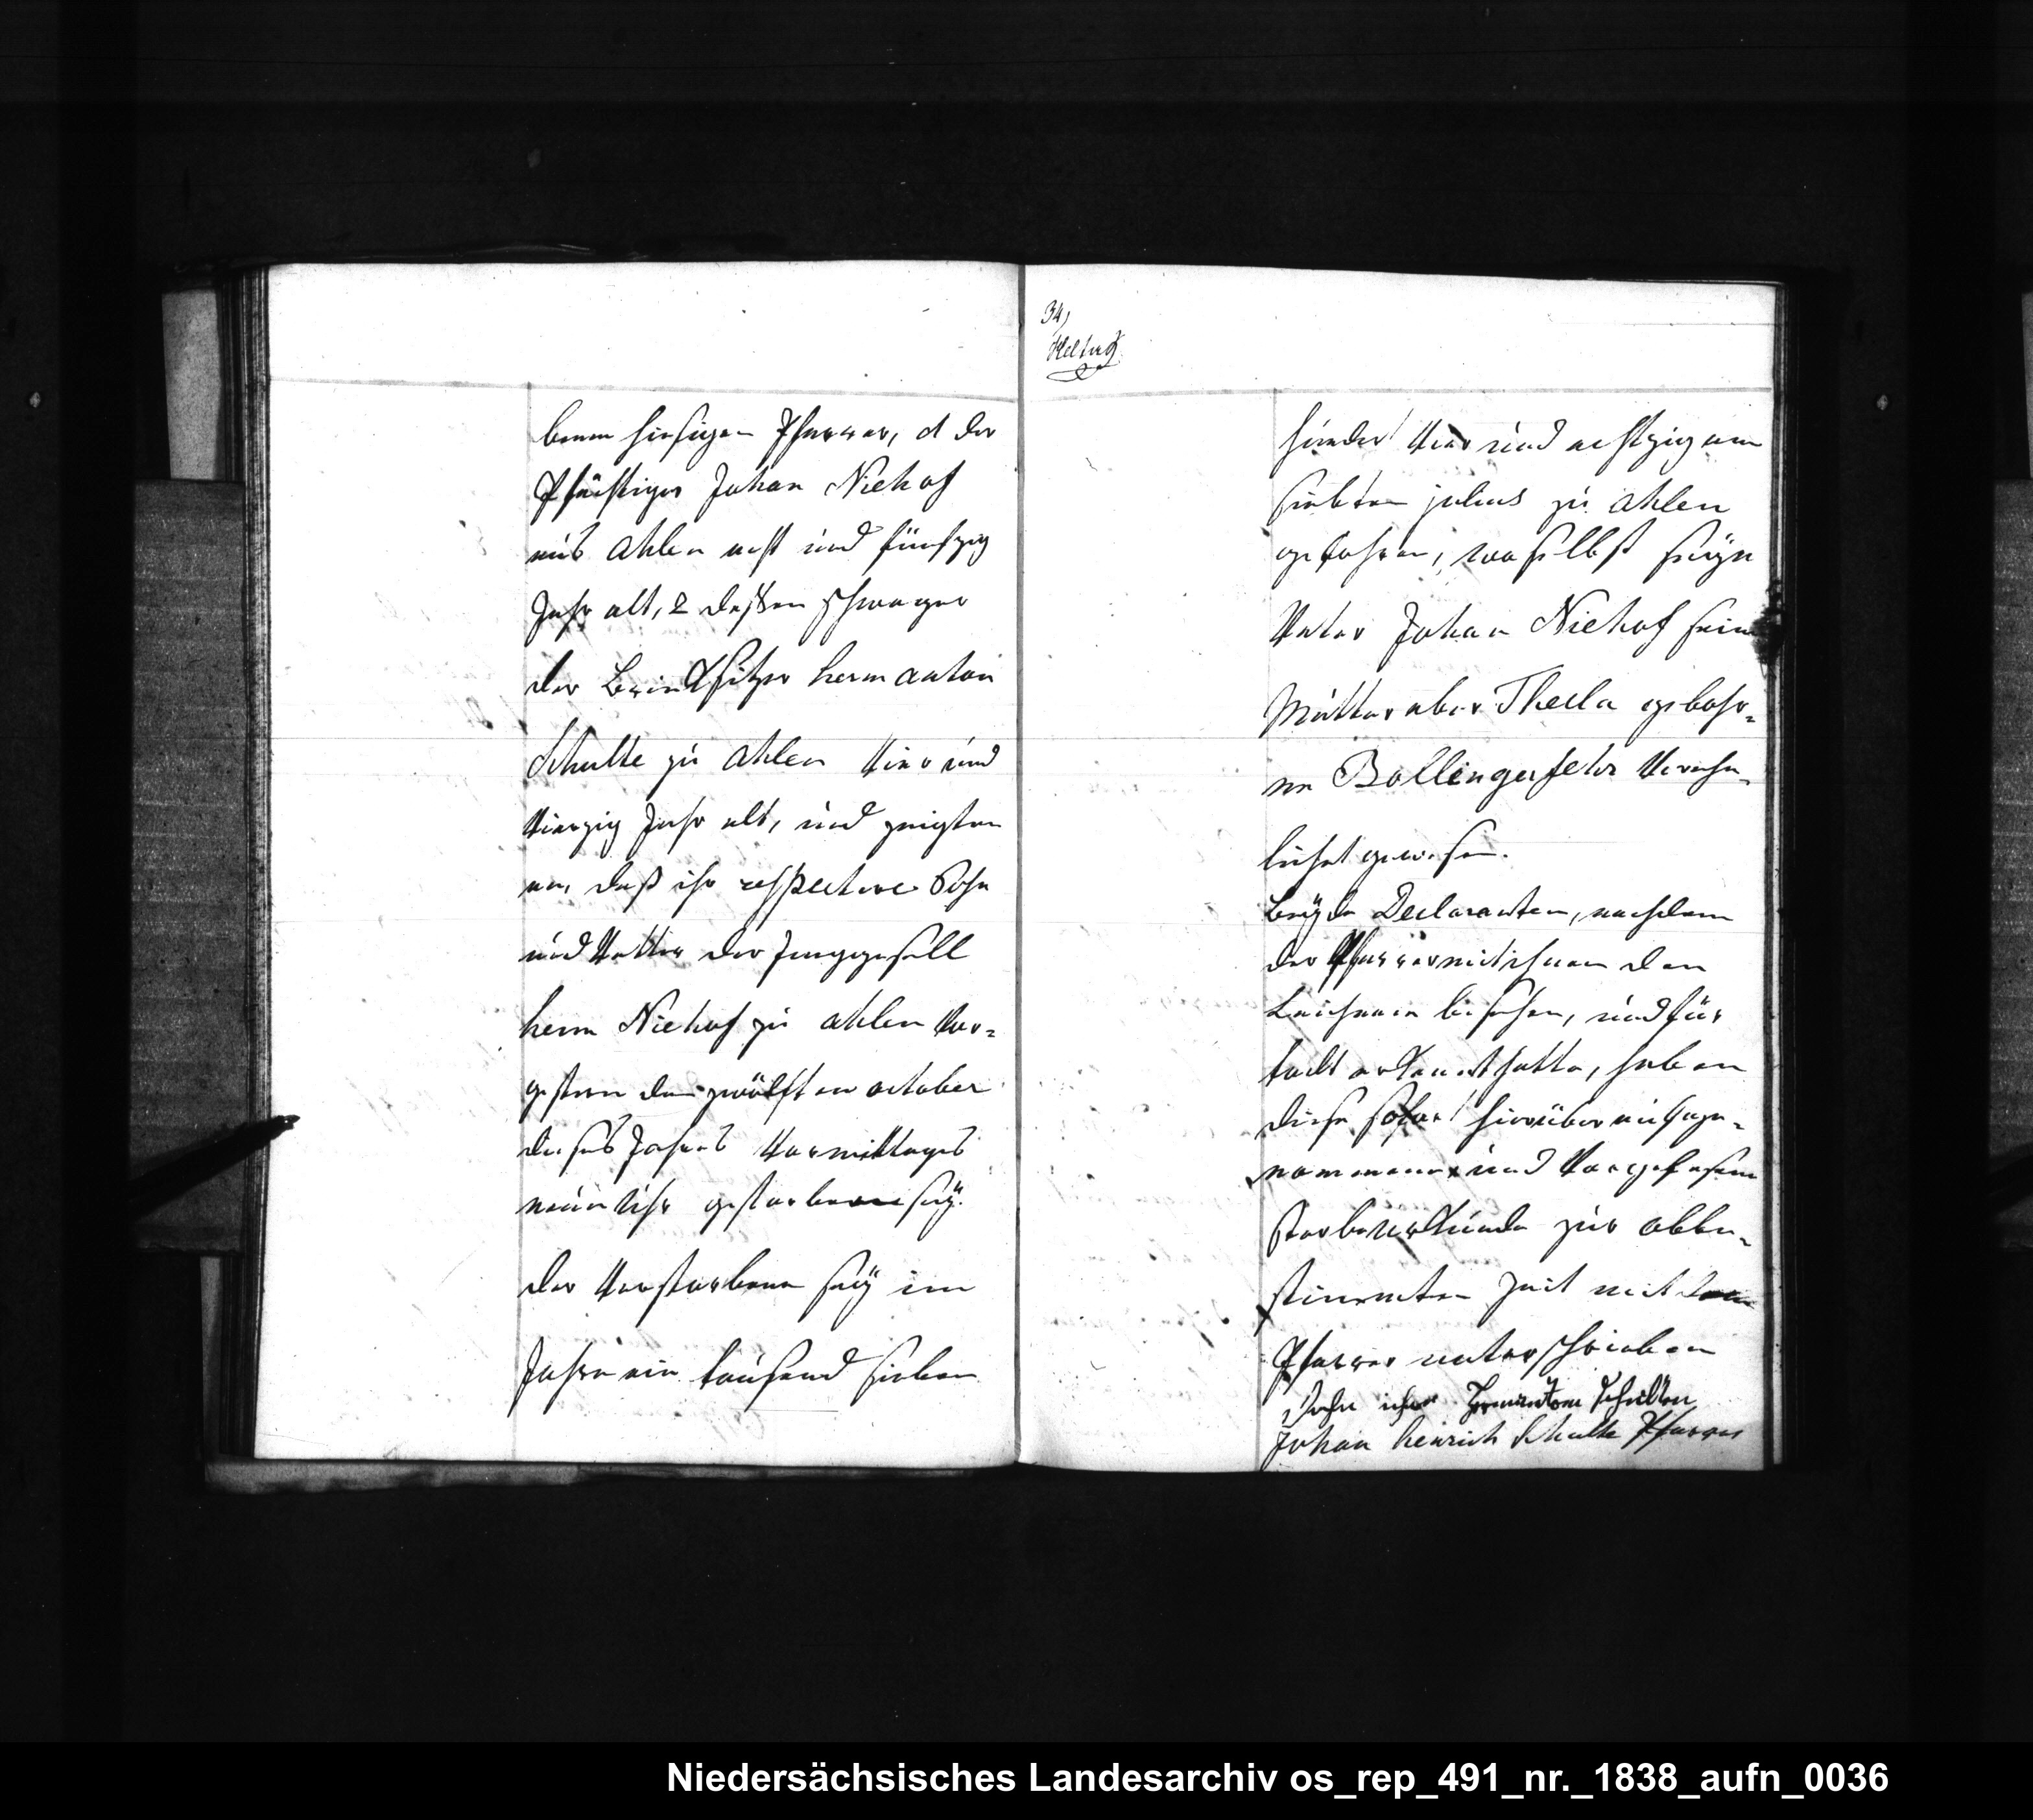 benen hiesigen Pfarrer, 1 der
Pfächtiger Johan Niehof
aus Ahlen acht und fünfzig
Jahr alt, 2 dessen schwager
der Brinksitzer herm anton
Schulte zu Ahlen Vier und
Vierzig Jahr alt, und zeigten
an, daß ihr respective Sohn
und Vetter der Junggesell
herm Niehof zu ahlen Vor=
gestern den zwölften october
dieses Jahres Vormittages
neün Uhr gestorben seÿ.
der Verstorbene seÿ im
Jahre ein taüsend sieben
34,
hundert Vier und achtzig am
siebten julius zu Ahlen
gebohren, woselbst seÿn
Vater Johan Niehof seine
Mutter aber Thecla gebohr=
ne Bollingerfehr Vereh=
licht gewesen.
Beÿde Declaranten, nachdem
der Pfarrer mit ihnen den
Leichnam besehen, und für
todt erkent hatte, haben
diese sofort hierüber aufge=
nommene und Vorgelesene
sterbeurkunde zur obbe=
stimmten Zeit mit dem
Pfarrer unterschrieben
Schulten
Johan henrich Schulte Pfarrer
Niedersächsisches Landesarchiv os_rep_491_nr._1838_aufn_0036